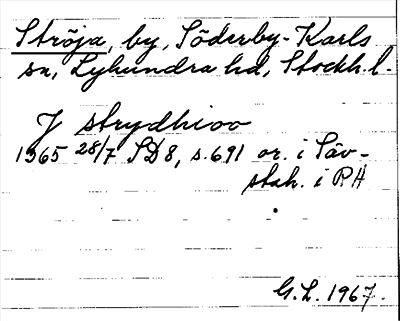 Ströja, by, Söderby-Karls
sn, Lyhundra hd, Stockh. l.
J strydhioo
1365 28/7 SD 8, s. 691 or. i Säv-
stah. i RA
G. L. 1967.